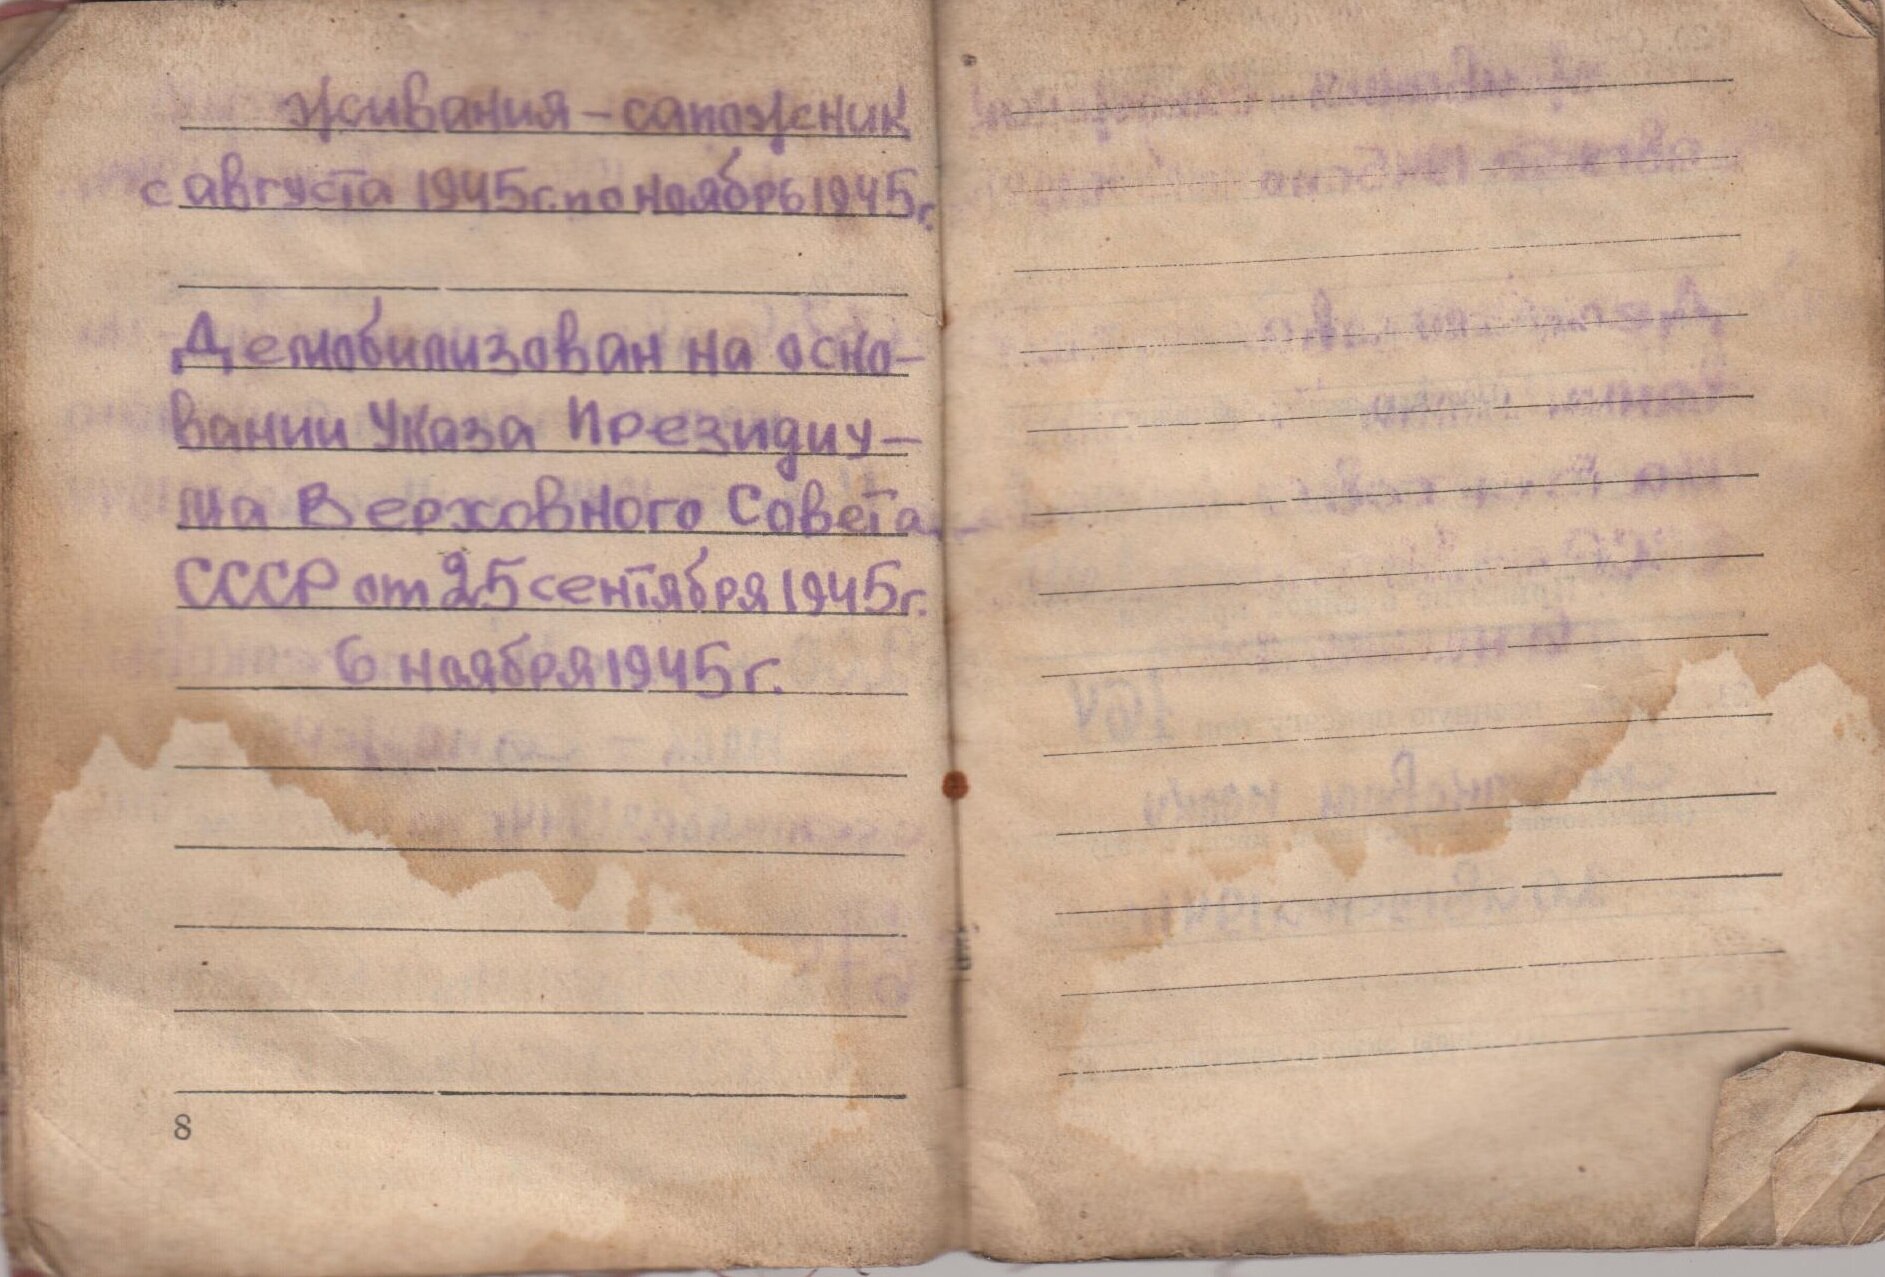 живания – сапожник
с августа 1945г. по ноябрь 1945г.
Демобилизован на осно-
вании Указа Президиу-
ма Верховного Совета
СССР от 25 сентября 1945г.
6 ноября 1945 г.
8